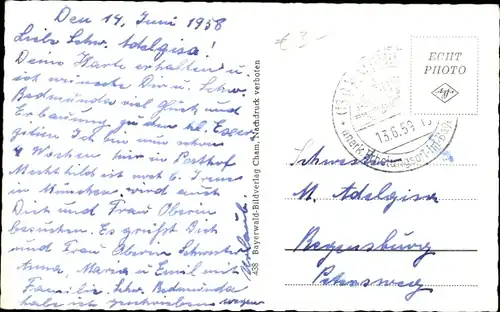 Den 14. Juni 1958
Liebe Schw. Adelgisa!
Deine Karte erhalten u.
ich wünsche Dir u. Schw.
Bedmunda viel Glück und
Erbauung zu den hl. Exer
zitien Ich bin nun schon
4 Wochen hier in
Mechthild ist mit
in München, wird auch
Dich und Frau Oberin
besuchen. Es grüßt Dich
und Frau Oberin Schwester
Anna, Maria u Emil mit
Familie. Schw. Bedmunda
habe ich geschrieben wegen
Urlaub!
438 Bayerwald-Bildverlag Cham, Nachdruck verboten
€ 3-
ECHT
PHOTO
Agfa
13.6.59
Schwester
M. Adelgisa
Regensburg
Petersweg